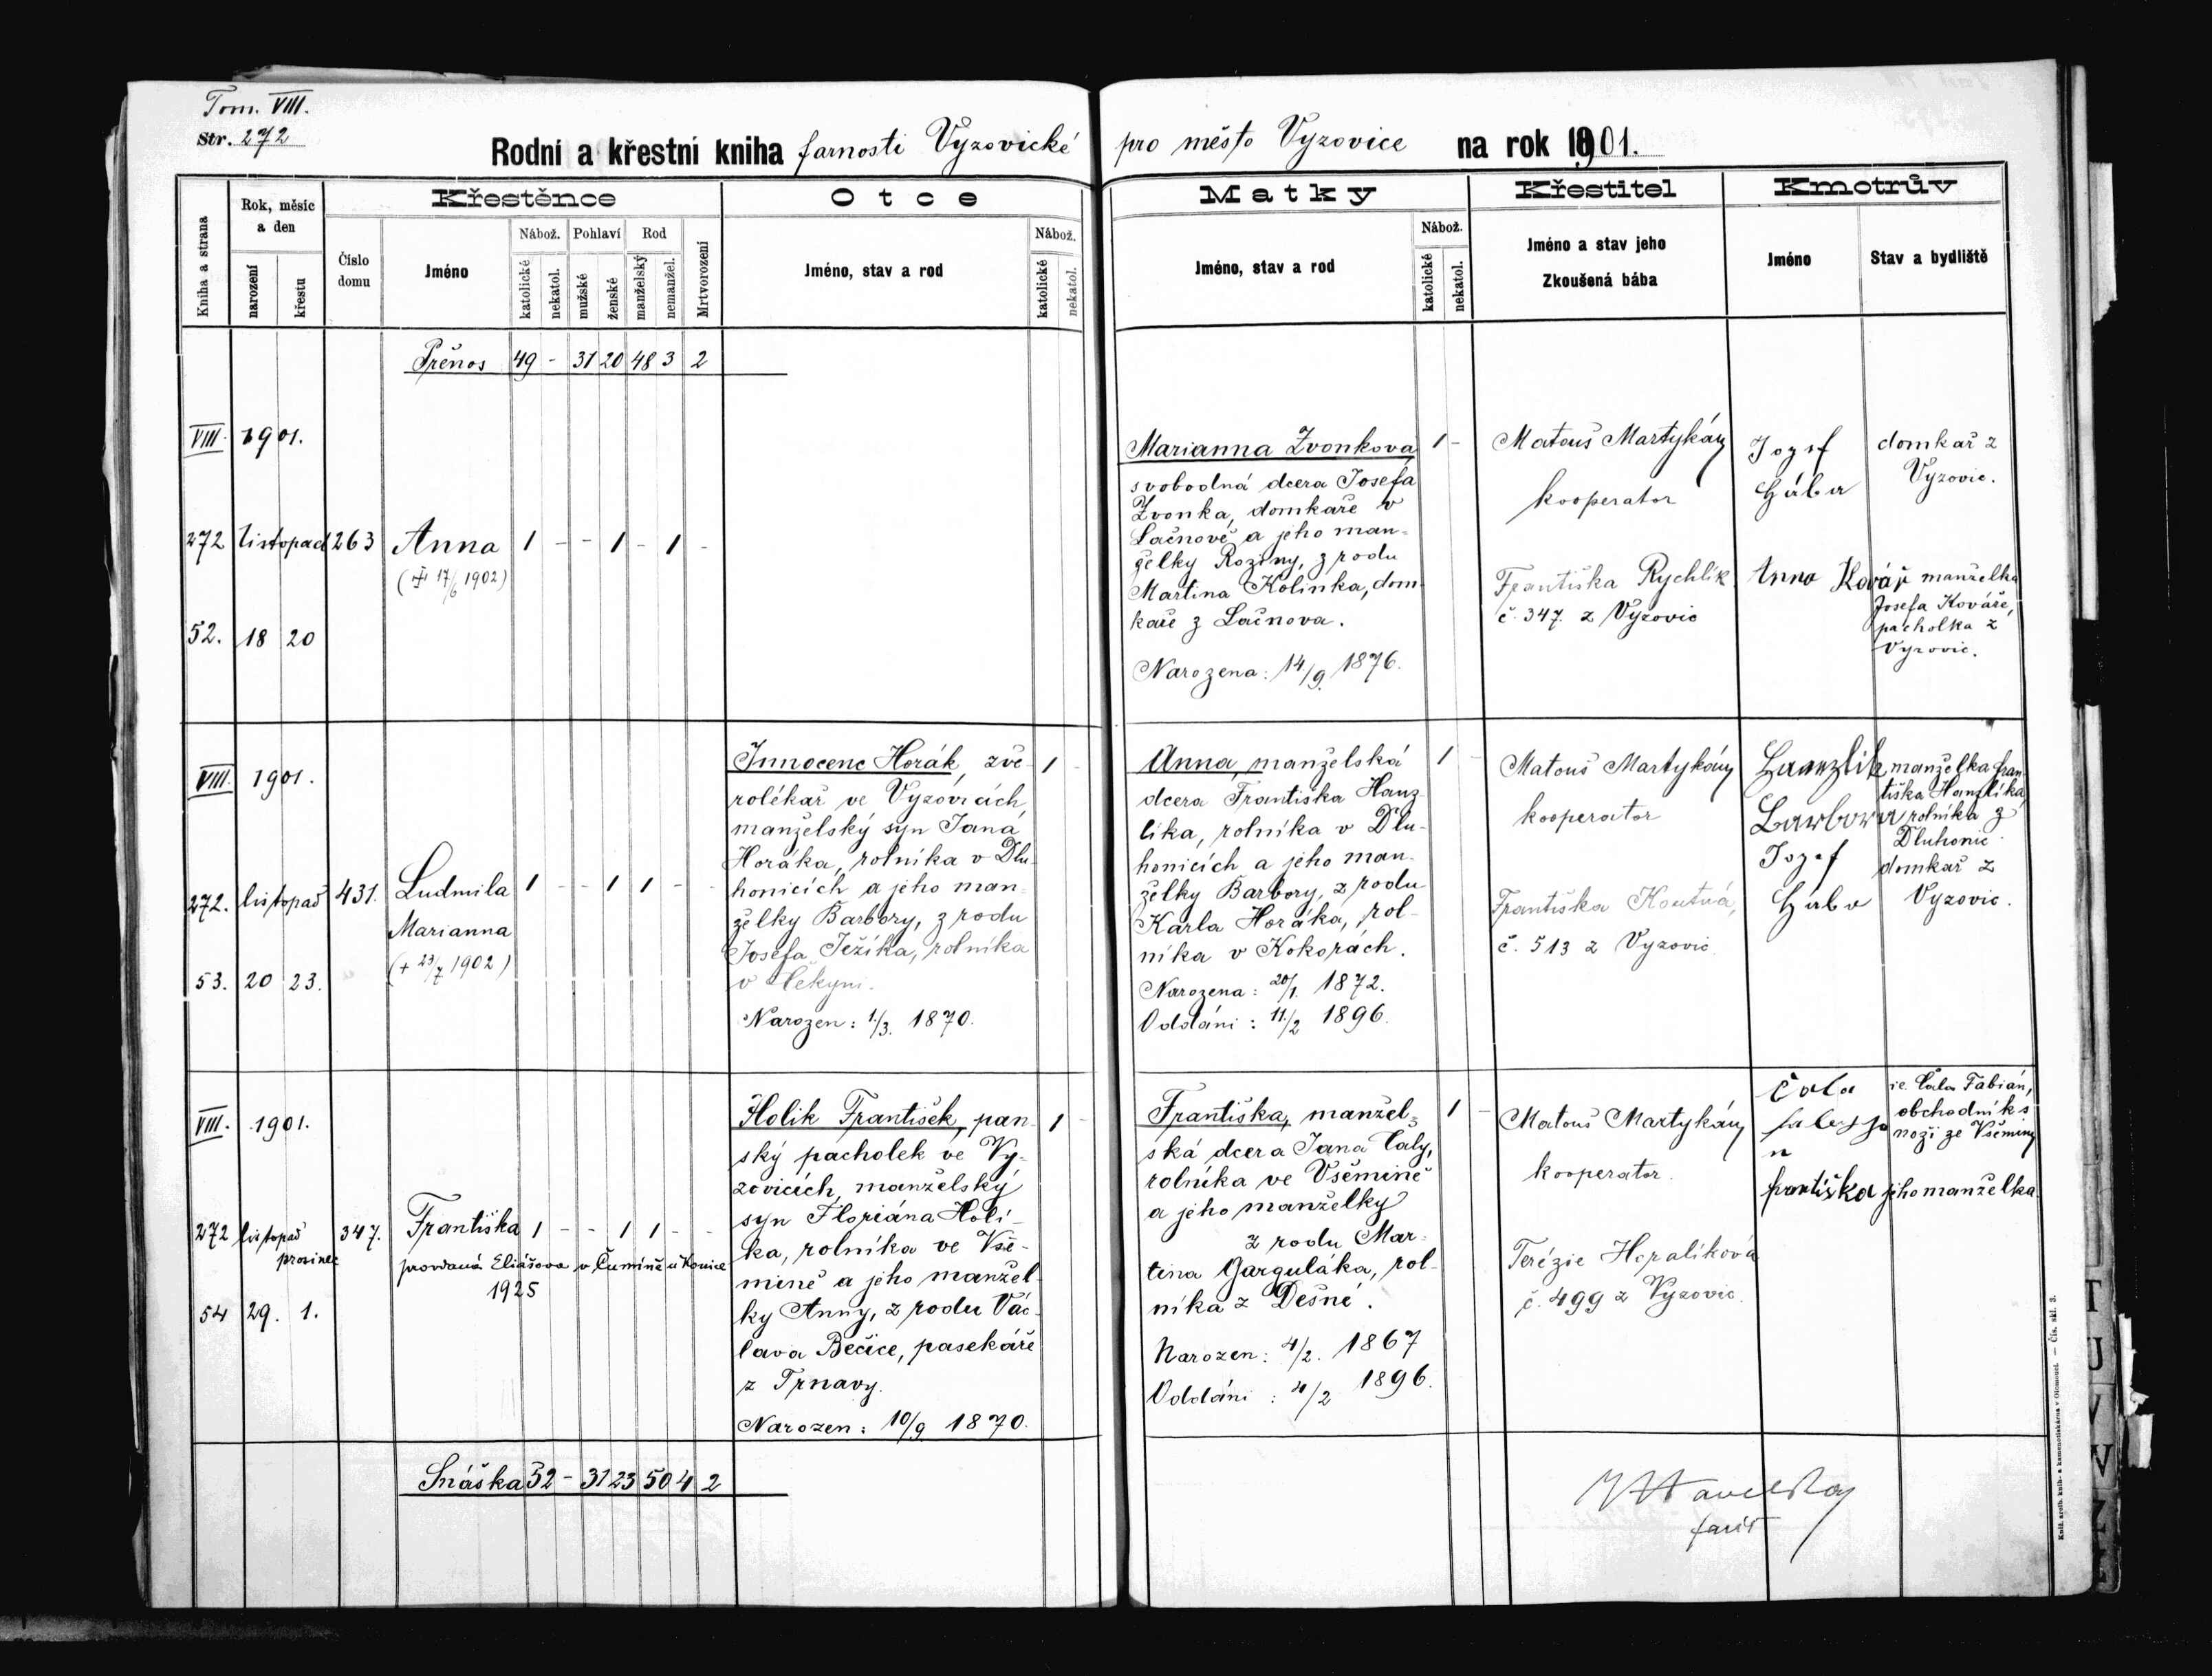 Tom. VIII.
Str. 272
Rodní a křestní kniha farnosti Vyzovické pro město Vyzovice na rok 1901.
Kniha a strana
Rok, měsíc
a den
narození
křestu
Číslo
domu
Křestěnce
Jméno
Nábož.
katolické
nekatol.
Pohlaví
mužské
ženské
Rod
manželský
nemanžel.
Mrtvorození
Otce
Jméno, stav a rod
Nábož.
katolické
nekatol.
Matky
Jméno, stav a rod
Nábož.
katolické
nekatol.
Křestitel
Jméno a stav jeho
Zkoušená bába
Kmotrův
Jméno
Stav a bydliště
Přenos 49 - 31 20 48 3 2
VIII. 1901.
272 listopad 263
52. 18 20
Anna 1 - - 1 - 1 -
(† 17/6 1902)
Marianna Zvonkova 1 -
svobodná dcera Josefa
Zvonka, domkaře v
Lačnově a jeho man-
želky Roziny, z rodu
Martina Kolínka, dom-
kaře z Lačnova.
Narozena: 14/9. 1876.
Matouš Martykán
kooperator
Františka Rychlík
č. 347. z Vyzovic
Jozef
Hába
domkař z
Vyzovic.
Anna Kovář manželka
Josefa Kováře,
pacholka z
Vyzovic.
VIII. 1901.
272. listopad 431.
53. 20 23.
Ludmila 1 - - 1 1 - -
Marianna
(+ 23/7 1902)
Innocenc Horák, zvě- 1 -
rolékař ve Vyzovicích,
manželský syn Jana
Horáka, rolníka v Dlu-
honicích a jeho man-
želky Barbory, z rodu
Josefa Ježíka, rolníka
v
Narozen: 1/3. 1870.
Anna, manželská 1 -
dcera Františka Hanz-
líka, rolníka v Dlu-
honicích a jeho man-
želky Barbory, z rodu
Karla Horáka, rol-
níka v Kokorách.
Narozena: 20/1. 1872.
Oddáni: 11/2 1896.
Matouš Martykán
kooperator
Františka Koutná,
č. 513 z Vyzovic.
Barbora
Jozef
Hába
manželka Fran-
tiška Hanzlíka,
rolníka z
Dluhonic
domkař z
Vyzovic.
VIII. 1901.
272 listopad 347.
prosinec
54 29. 1.
Františka 1 - - 1 1 - -
provdaná Eliášova v Čunině u Konice
1925
Holik František, pan- 1 -
ský pacholek ve Vy-
zovicích, manželský
syn Floriána Holí-
ka, rolníka ve Vše-
mině a jeho manžel-
ky Anny, z rodu Vác-
lava Bečice, pasekáře
z Trnavy.
Narozen: 10/9 1870.
Františka, manžel- 1 -
ská dcera Jana Čaly,
rolníka ve Všemině
a jeho manželky
z rodu Mar-
tina Garguláka, rol-
níka z Dešné.
Narozen: 4/2. 1867
Oddáni: 4/2 1896.
Matouš Martykán
kooperator.
Terézie Hapalíková
č. 499 z Vyzovic.
Čala
n
Františka jeho manželka.
ie. Čala Fabián,
obchodník s
noži ze Všeminy
Snáška 52 - 31 23 50 4 2
farář
Kniž. arcib. knih- a kamenotiskárna v Olomouci. — Čís. skl. 3.
T
U
V
W
Z